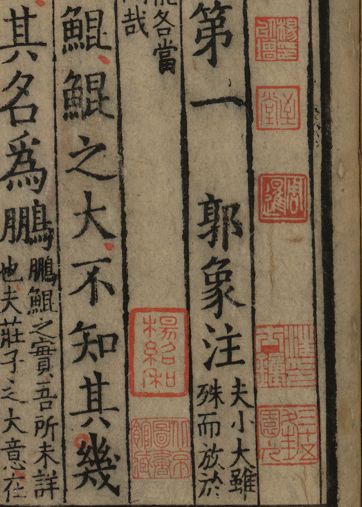 第一 郭象注 夫小大雖
殊而放於
能各當
哉
鯤鯤之大不知其幾
其名爲鵬 鵬鯤之實吾所未詳
也夫莊子之大意在
周暹
楊紹和
北京圖書館藏